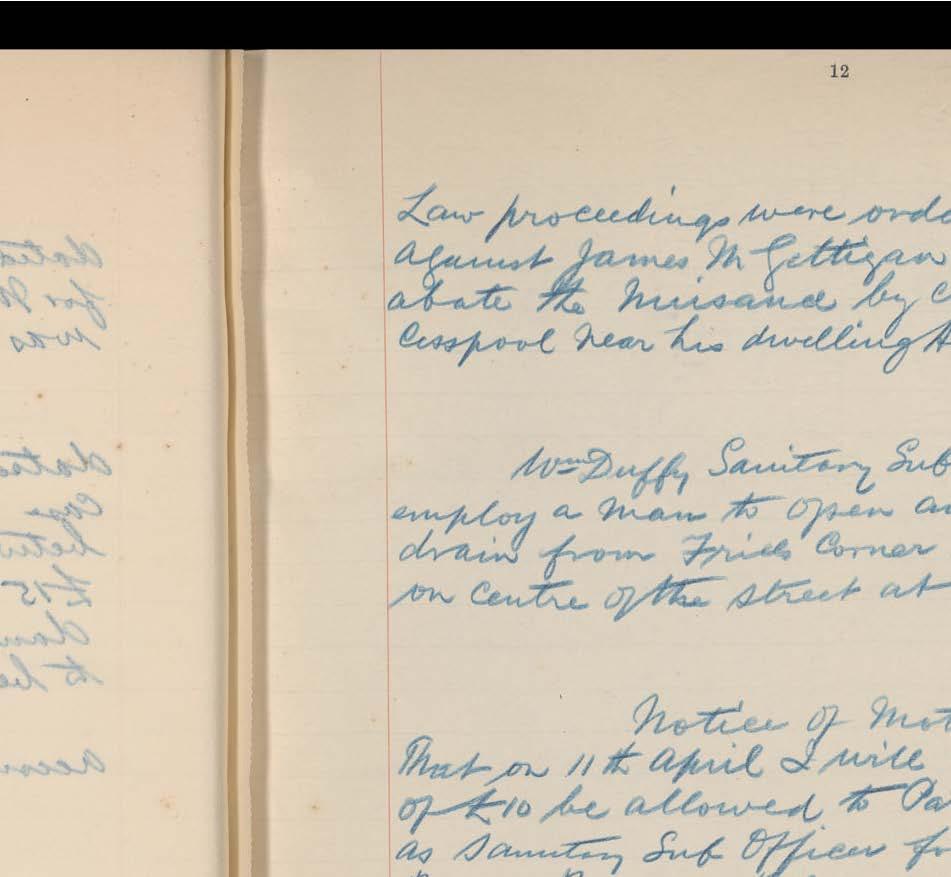 12
Law proceedings were ord
against James McGettigan
abate the nuisance by C
Cesspool near his dwelling H
Wm Duffy Sanitary Sub
employ a man to open an
drain from Friels Corner
on Centre of the street at
Notice of Mot
That on 11th April I will
of £10 be allowed to Pa
as Sanitary Sub Officer fo